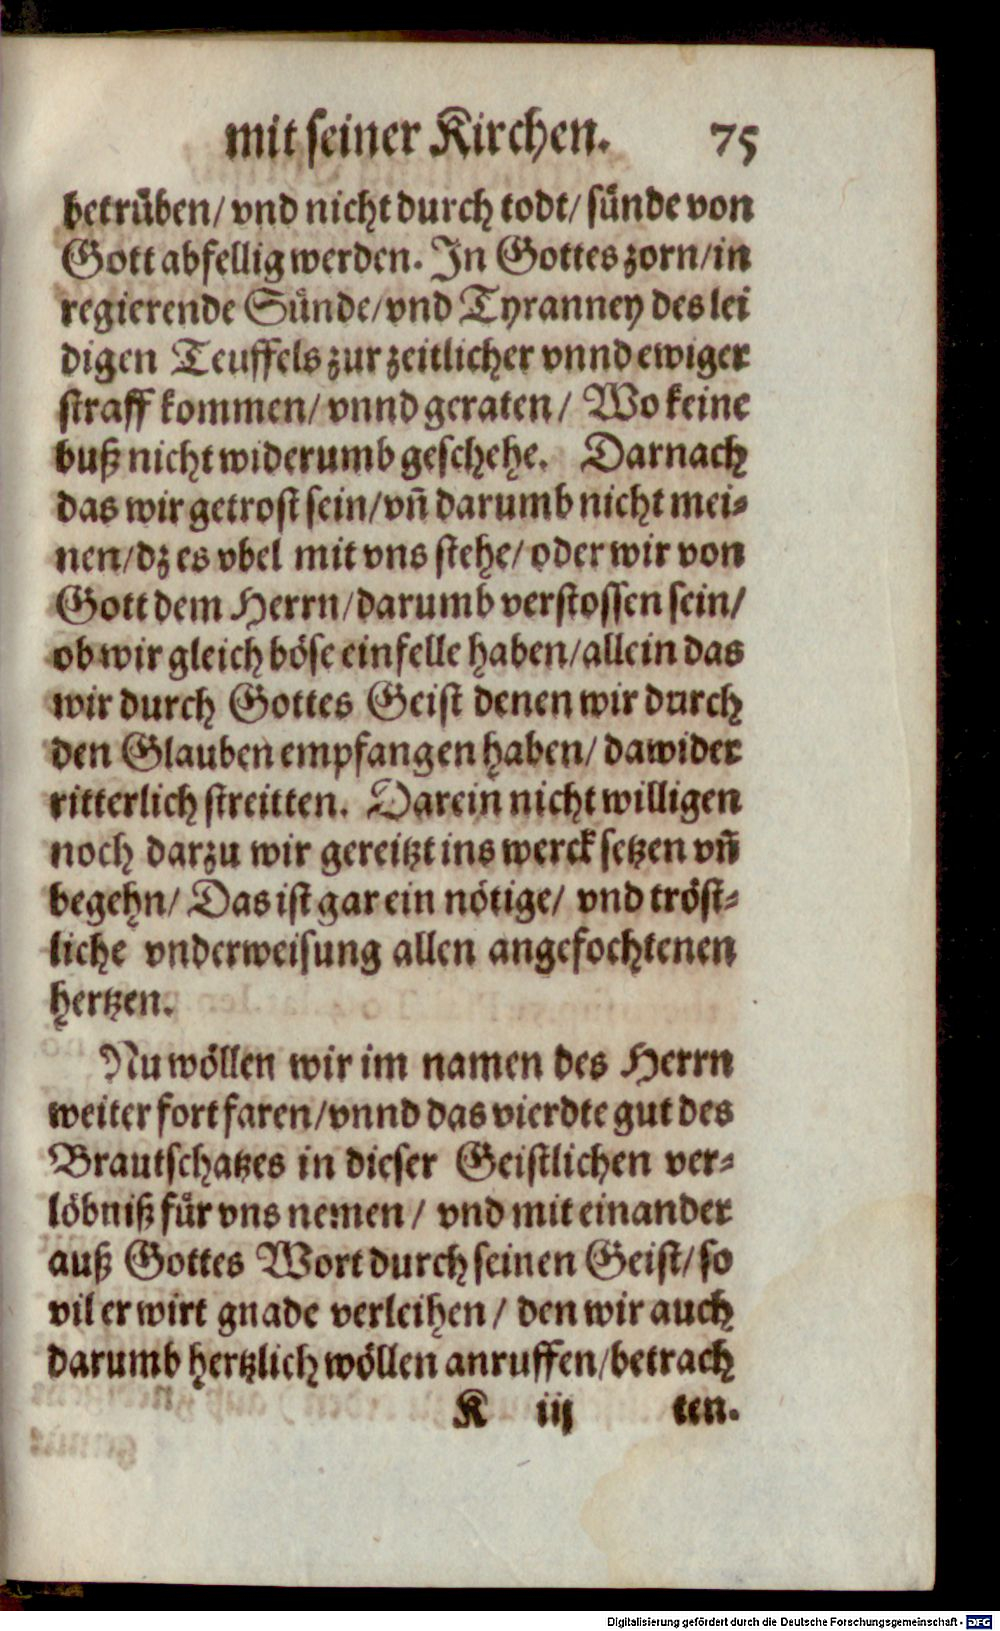 mit seiner Kirchen. 75
betrüben/ vnd nicht durch todt/ sünde von
Gott abfellig werden. In Gottes zorn/in
regierende Sünde/vnd Tyranney des lei
digen Teuffels zur zeitlicher vnnd ewiger
straff kommen/ vnnd geraten/ Wo keine
buß nicht widerumb geschehe. Darnach
das wir getrost sein/vñ darumb nicht mei-
nen/dz es vbel mit vns stehe/ oder wir von
Gott dem Herrn/darumb verstossen sein/
ob wir gleich böse einfelle haben/allein das
wir durch Gottes Geist denen wir durch
den Glauben empfangen haben/ dawider
ritterlich streitten. Darein nicht willigen
noch darzu wir gereitzt ins werck setzen vñ
begehn/ Das ist gar ein nötige/ vnd tröst-
liche vnderweisung allen angefochtenen
hertzen.
Nu wöllen wir im namen des Herrn
weiter fort faren/vnnd das vierdte gut des
Brautschatzes in dieser Geistlichen ver-
löbniß für vns nemen/ vnd mit einander
auß Gottes Wort durch seinen Geist/ so
vil er wirt gnade verleihen/ den wir auch
darumb hertzlich wöllen anruffen/betrach
K iij ten.
Digitalisierung gefördert durch die Deutsche Forschungsgemeinschaft - DFG